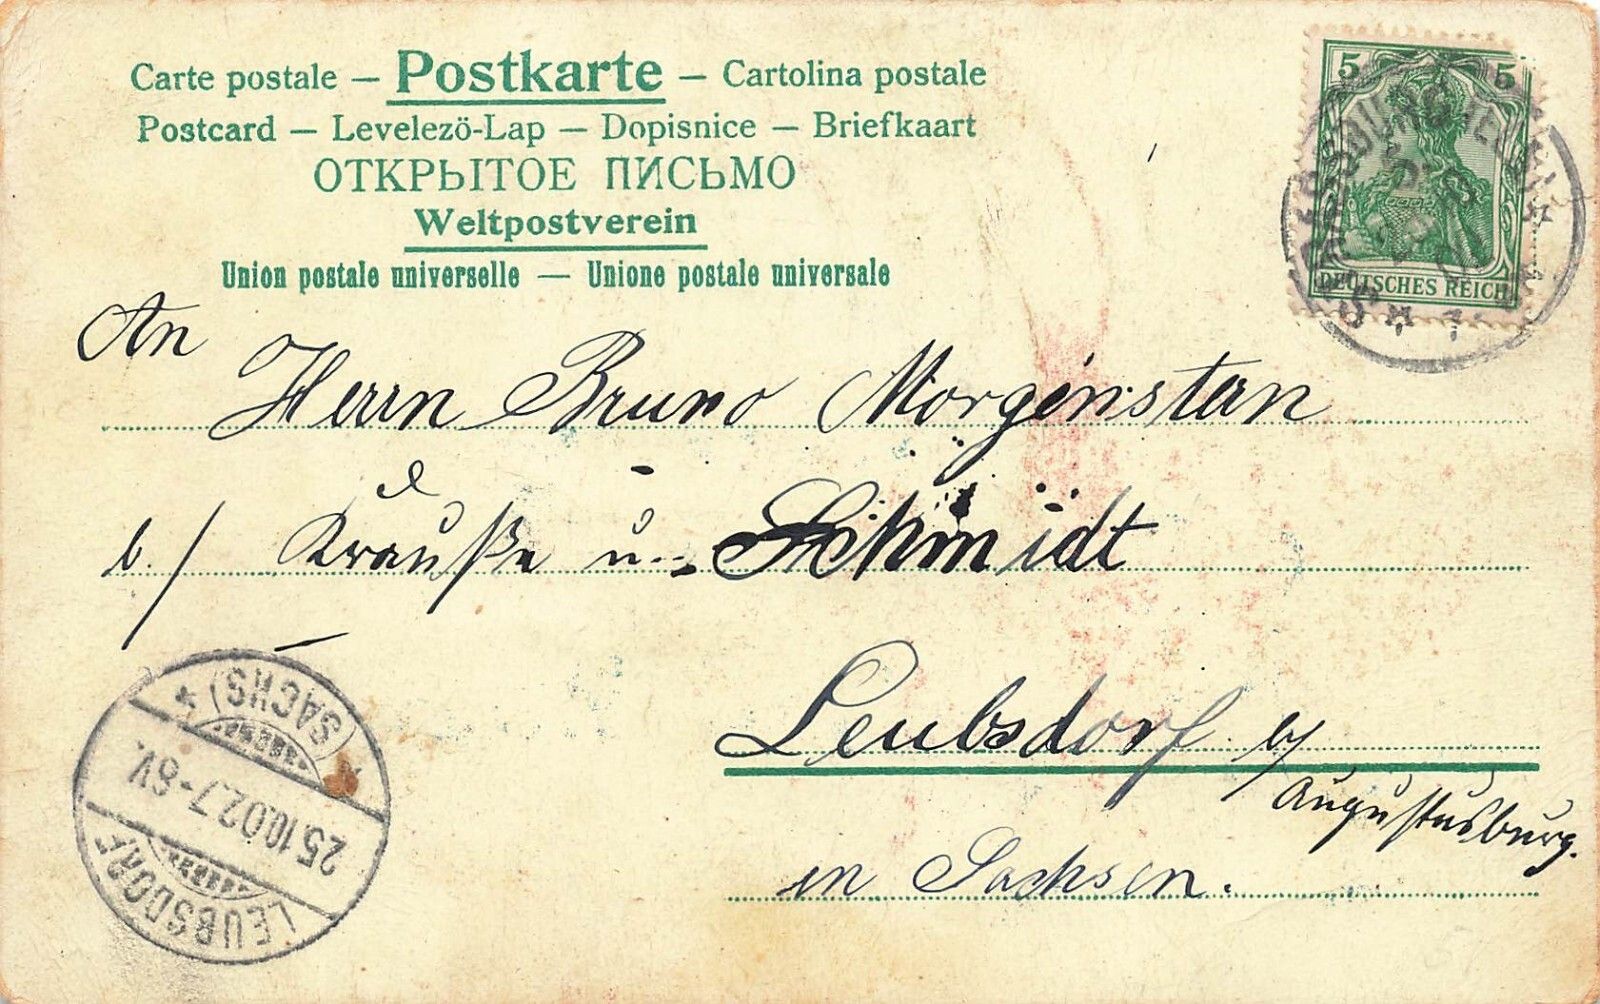 Carte postale — Postkarte — Cartolina postale
Postcard — Levelező-Lap — Dopisnice — Briefkaart
ОТКРЫТОЕ ПИСЬМО
Weltpostverein
Union postale universelle — Unione postale universale
5 5
DEUTSCHES REICH
An
Herrn Bruno Morgenstern
b./ Krauße u. Schmidt
Leubsdorf b/
Augustusburg.
in Sachsen.
LEUBSDORF
25.10.02.7-8V.
(SACHS)